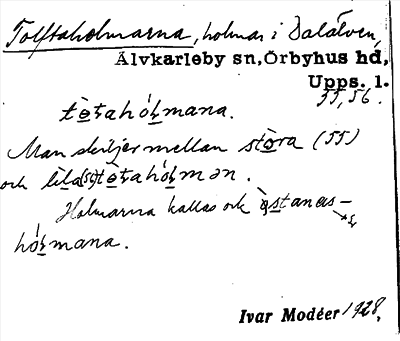 Tolftaholmarna, holmar i Dalälven,
Älvkarleby sn, Örbyhus hd,
Upps. l.
55, 56.
tòtahólmana.
Man skiljer mellan stòra (55)
och lila (56) tòtahólmən.
Holmarna kallas ock
hólmana.
Ivar Modéer 1928.